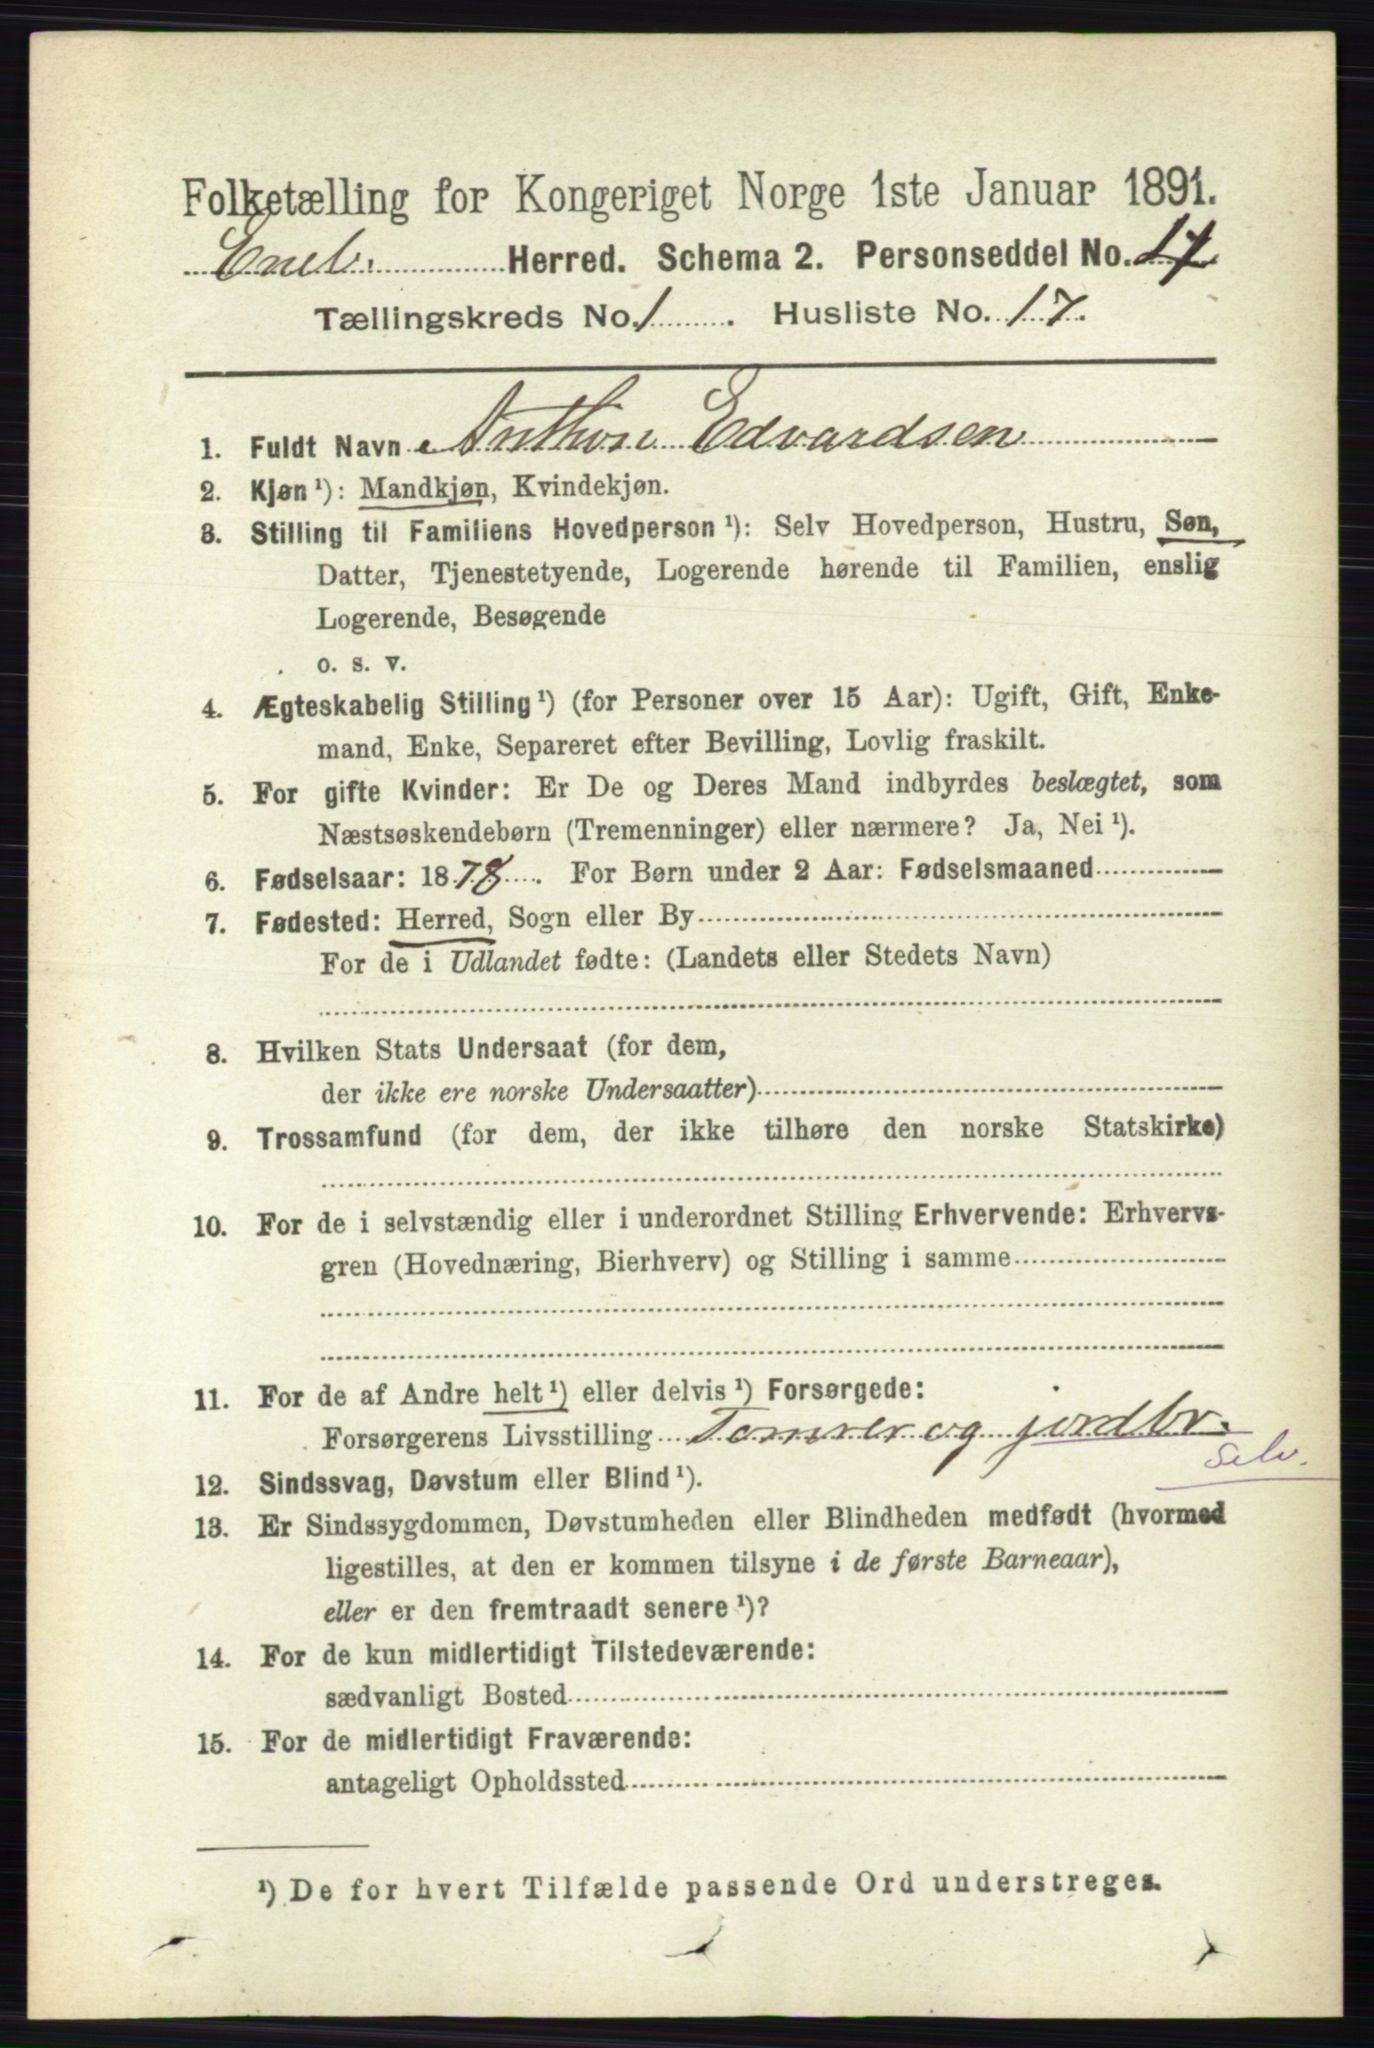 Folketælling for Kongeriget Norge 1ste Januar 1891.
Eneb. Herred. Schema 2. Personseddel No.
Tællingskreds No. 1 . Husliste No. 17.
1. Fuldt Navn Anthon Edvardsen
2. Kjøn¹): Mandkjøn, Kvindekjøn.
3. Stilling til Familiens Hovedperson¹): Selv Hovedperson, Hustru, Søn,
Datter, Tjenestetyende, Logerende hørende til Familien, enslig
Logerende, Besøgende
o. s. v.
4. Ægteskabelig Stilling¹) (for Personer over 15 Aar): Ugift, Gift, Enke-
mand, Enke, Separeret efter Bevilling, Lovlig fraskilt.
5. For gifte Kvinder: Er De og Deres Mand indbyrdes beslægtet, som
Næstsøskendebørn (Tremenninger) eller nærmere? Ja, Nei¹).
6. Fødselsaar: 1878. For Børn under 2 Aar: Fødselsmaaned
7. Fødested: Herred, Sogn eller By
For de i Udlandet fødte: (Landets eller Stedets Navn)
8. Hvilken Stats Undersaat (for dem,
der ikke ere norske Undersaatter)
9. Trossamfund (for dem, der ikke tilhøre den norske Statskirke)
10. For de i selvstændig eller i underordnet Stilling Erhvervende: Erhvervs-
gren (Hovednæring, Bierhverv) og Stilling i samme
11. For de af Andre helt¹) eller delvis¹) Forsørgede:
Forsørgerens Livsstilling Tømrer og jordbr.
Selv.
12. Sindssvag, Døvstum eller Blind¹).
13. Er Sindssygdommen, Døvstumheden eller Blindheden medfødt (hvormed
ligestilles, at den er kommen tilsyne i de første Barneaar),
eller er den fremtraadt senere¹)?
14. For de kun midlertidigt Tilstedeværende:
sædvanligt Bosted
15. For de midlertidigt Fraværende:
antageligt Opholdssted
¹) De for hvert Tilfælde passende Ord understreges.